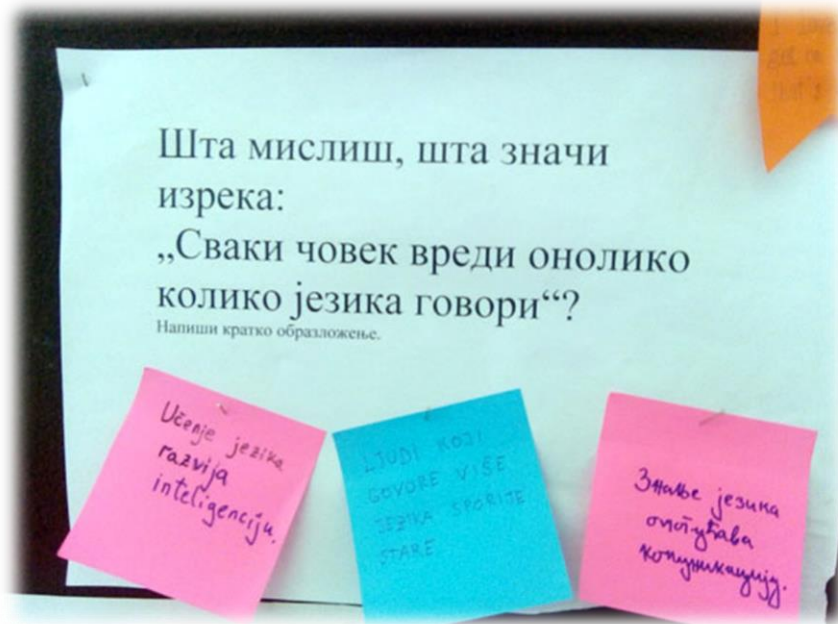 Шта мислиш, шта значи
изрека:
„Сваки човек вреди онолико
колико језика говори“?
Напиши кратко образложење.
Učenje jezika
razvija
inteligenciju.
LJUDI KOJI
GOVORE VIŠE
JEZIKA SPORIJE
STARE
Знање језика
комуникацију.